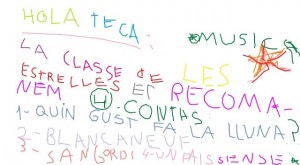 HOLA TECA:
MUSICA
LA CLASSE DE LES
ESTRELLES ET RECOMA-
NEM 4 CONTAS
1- QUIN GUST FA LA LLUNA?
2- BLANCANEUF
3- SANGORDI 4- UN PAIS SENSE